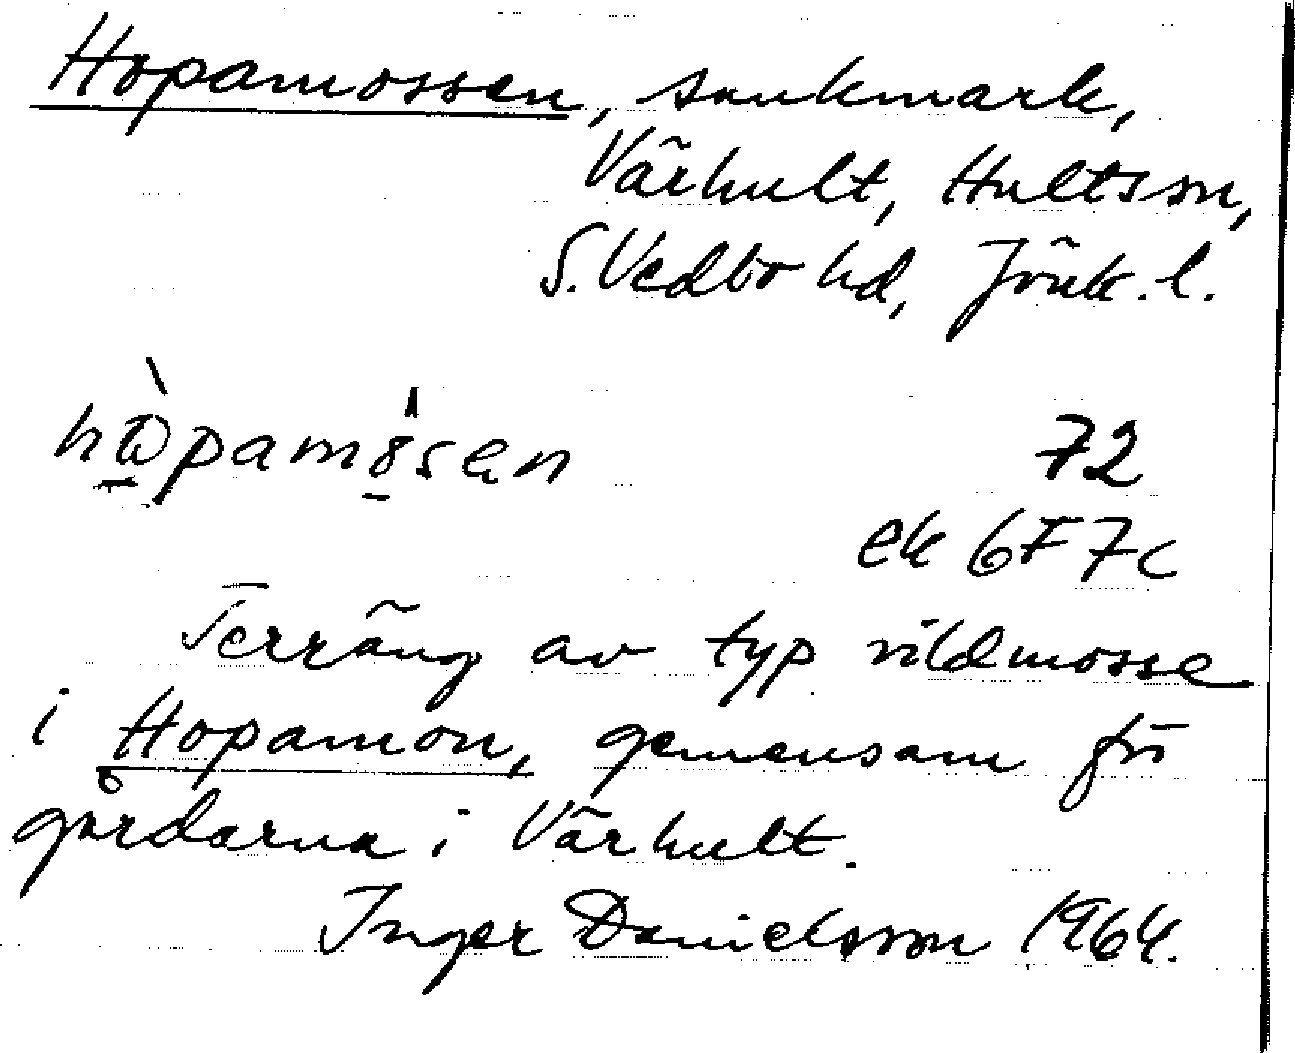 Hopamossen, sankmark,
Värhult, Hultsson,
S. Vedbo hd, Jönk. l.
72
ek 6F7c
Terräng av typ vildmosse
i Hopamon, gemensam för
gårdarna i Värhult.
Inger Danielsson 1964.